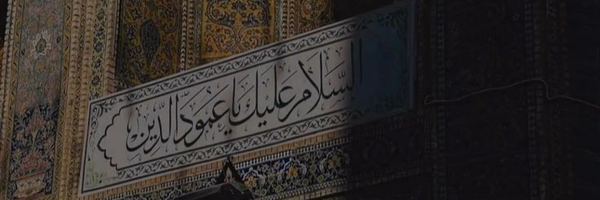 السَّلامُ عَلَیكَ یا عَمُودَ الدِّینِ